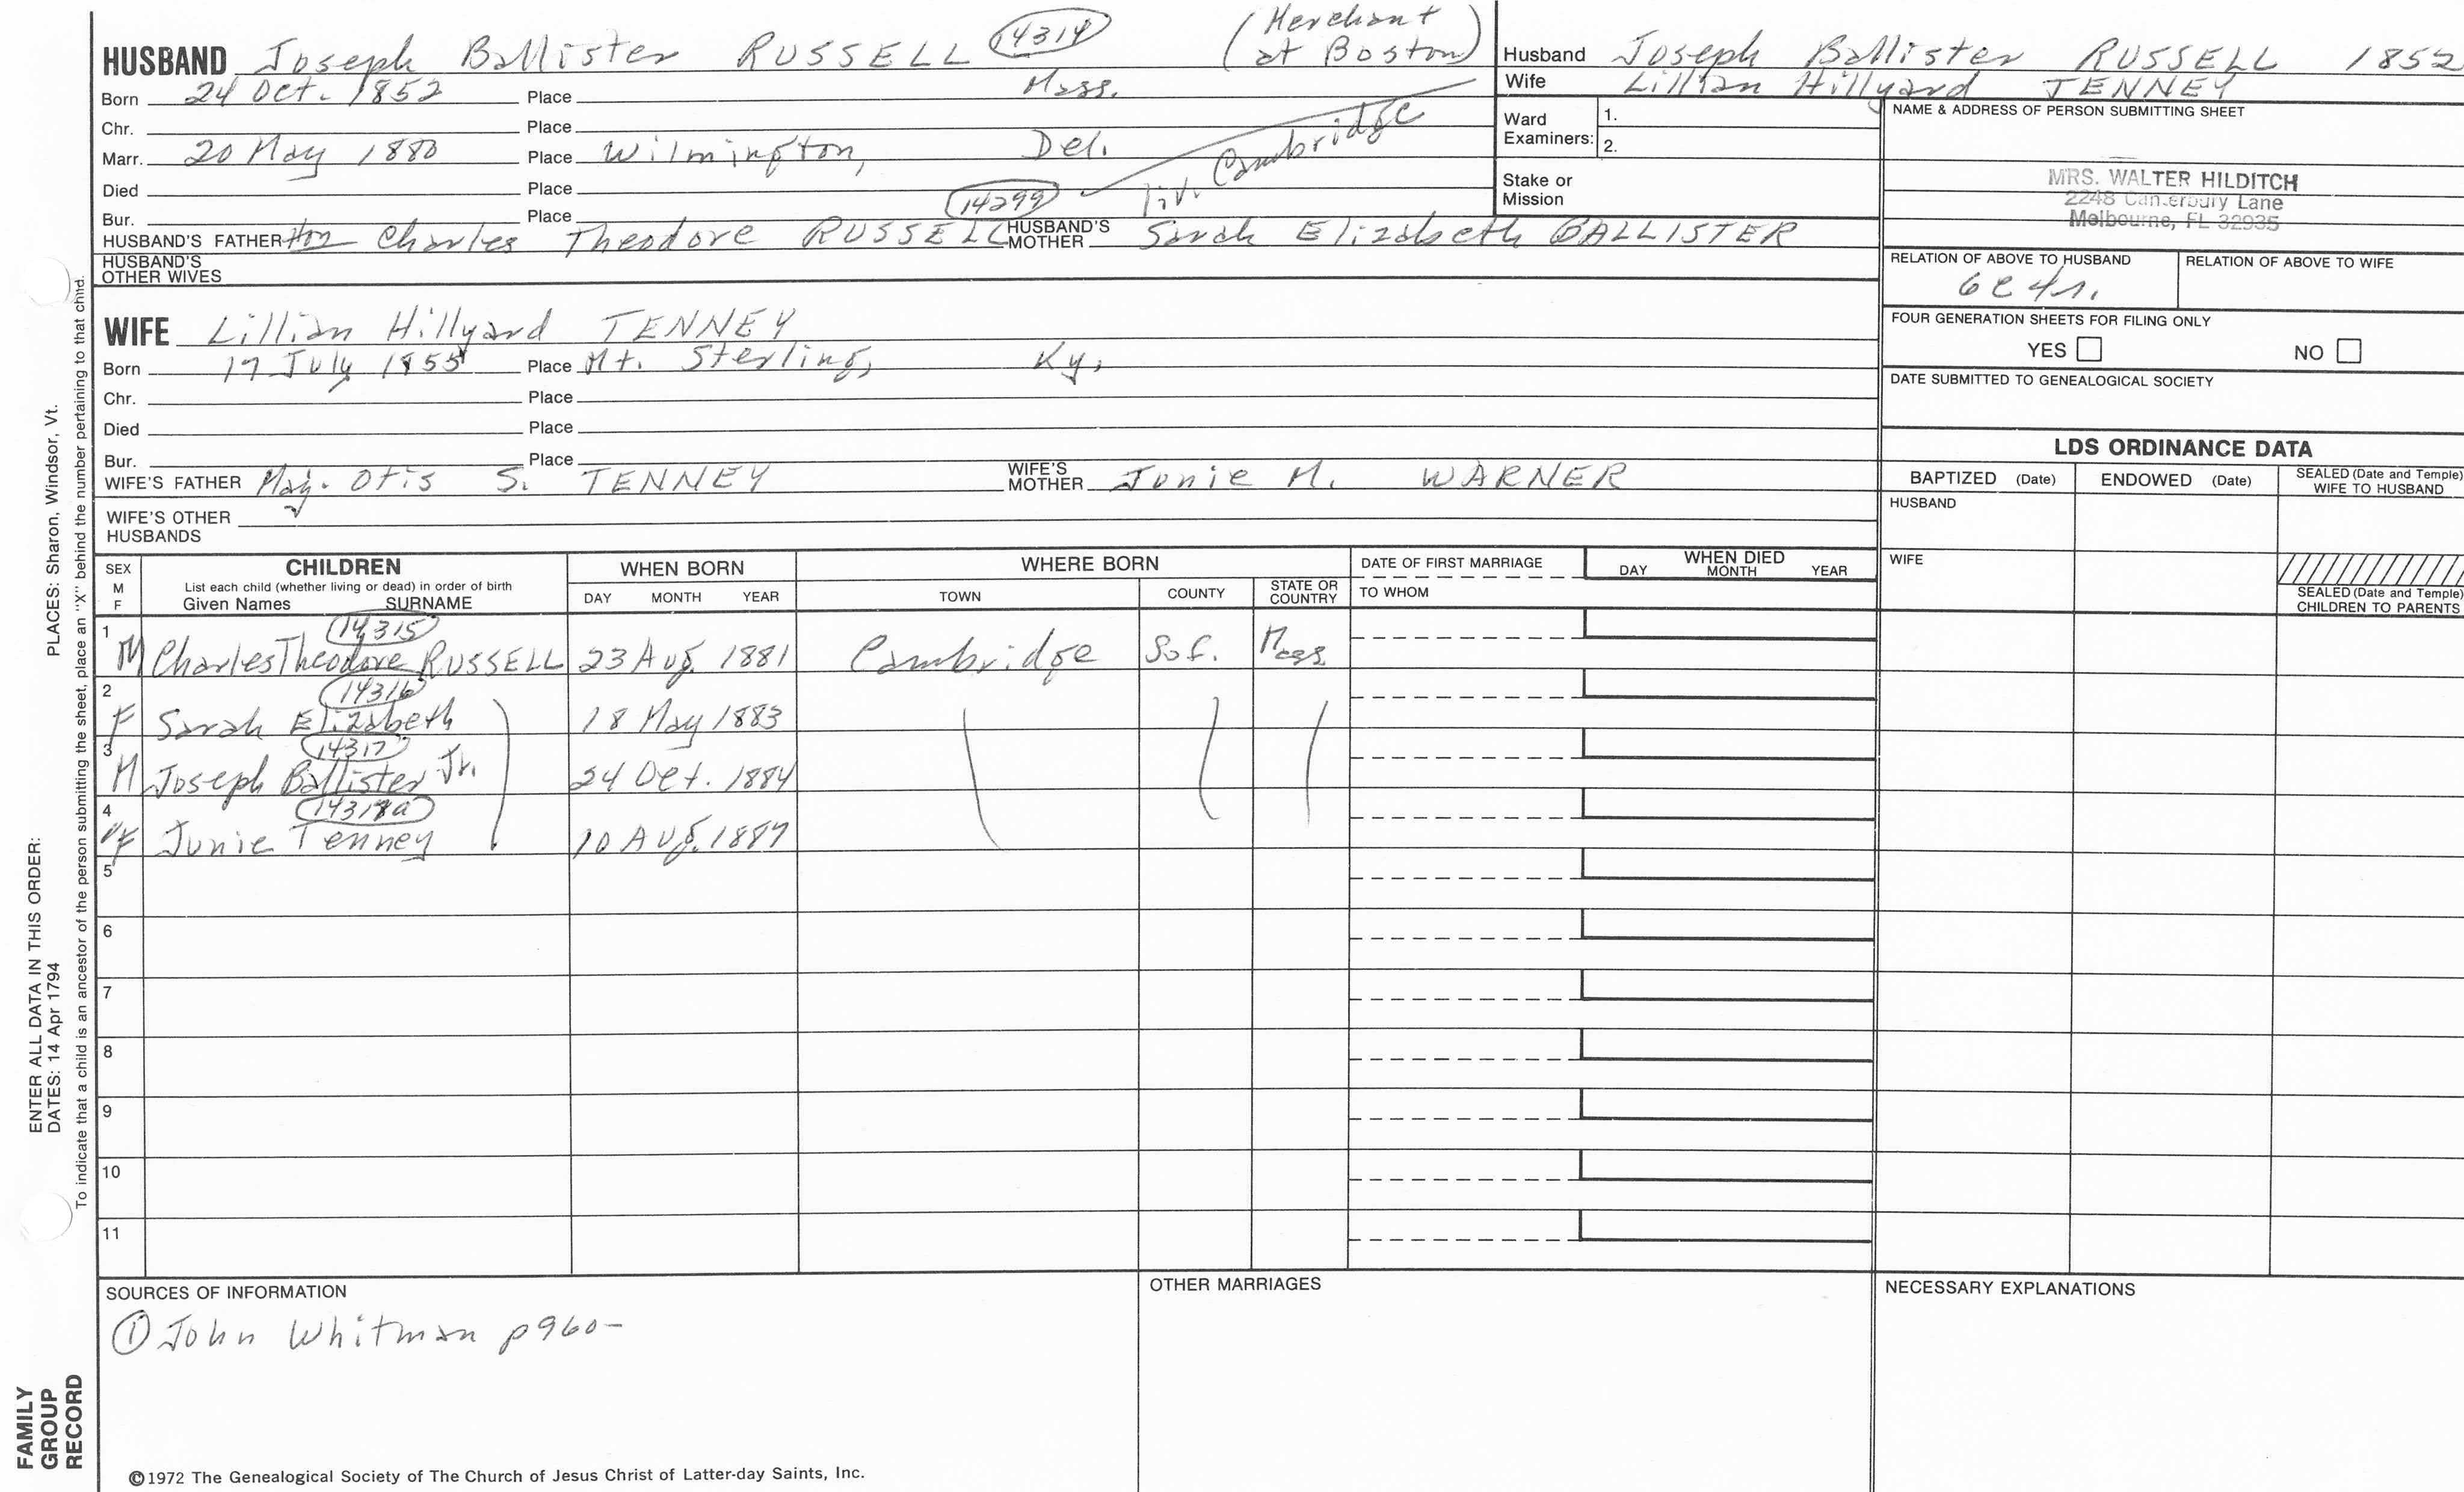 HUSBAND Joseph Ballister RUSSELL 14314 (Merchant at Boston)
Born 24 Oct. 1852 Place Mass.
Chr. Place
Marr. 20 May 1880 Place Wilmington, Del.
liv. Cambridge
Died Place
Bur. Place
14299
HUSBAND'S FATHER Hon Charles Theodore RUSSELL HUSBAND'S MOTHER Sarah Elizabeth BALLISTER
HUSBAND'S OTHER WIVES
WIFE Lillian Hillyard TENNEY
Born 17 July 1855 Place Mt. Sterling, Ky.
Chr. Place
Died Place
Bur. Place
WIFE'S FATHER Maj. Otis S. TENNEY WIFE'S MOTHER Junie M. WARNER
WIFE'S OTHER HUSBANDS
Husband Joseph Ballister RUSSELL 1852
Wife Lillian Hillyard TENNEY
Ward Examiners: 1.
2.
Stake or Mission
NAME & ADDRESS OF PERSON SUBMITTING SHEET
MRS. WALTER HILDITCH
2248 Canterbury Lane
Melbourne, FL 32935
RELATION OF ABOVE TO HUSBAND RELATION OF ABOVE TO WIFE
6c4r.
FOUR GENERATION SHEETS FOR FILING ONLY
YES NO
DATE SUBMITTED TO GENEALOGICAL SOCIETY
LDS ORDINANCE DATA
BAPTIZED (Date) ENDOWED (Date) SEALED (Date and Temple) WIFE TO HUSBAND
HUSBAND
WIFE
SEALED (Date and Temple) CHILDREN TO PARENTS
SEX M F
CHILDREN
List each child (whether living or dead) in order of birth
Given Names SURNAME
WHEN BORN
DAY MONTH YEAR
WHERE BORN
TOWN COUNTY STATE OR COUNTRY
DATE OF FIRST MARRIAGE
TO WHOM
WHEN DIED
DAY MONTH YEAR
14315
1 M Charles Theodore RUSSELL 23 Aug. 1881 Cambridge Suf. Mass.
14316
2 F Sarah Elizabeth 18 May 1883
14317
3 M Joseph Ballister Jr. 24 Oct. 1884
14317a
4 F Junie Tenney 10 Aug. 1887
5
6
7
8
9
10
11
SOURCES OF INFORMATION
① John Whitman p960-
OTHER MARRIAGES
NECESSARY EXPLANATIONS
©1972 The Genealogical Society of The Church of Jesus Christ of Latter-day Saints, Inc.
ENTER ALL DATA IN THIS ORDER:
DATES: 14 Apr 1794 PLACES: Sharon, Windsor, Vt.
To indicate that a child is an ancestor of the person submitting the sheet, place an "X" behind the number pertaining to that child.
FAMILY
GROUP
RECORD